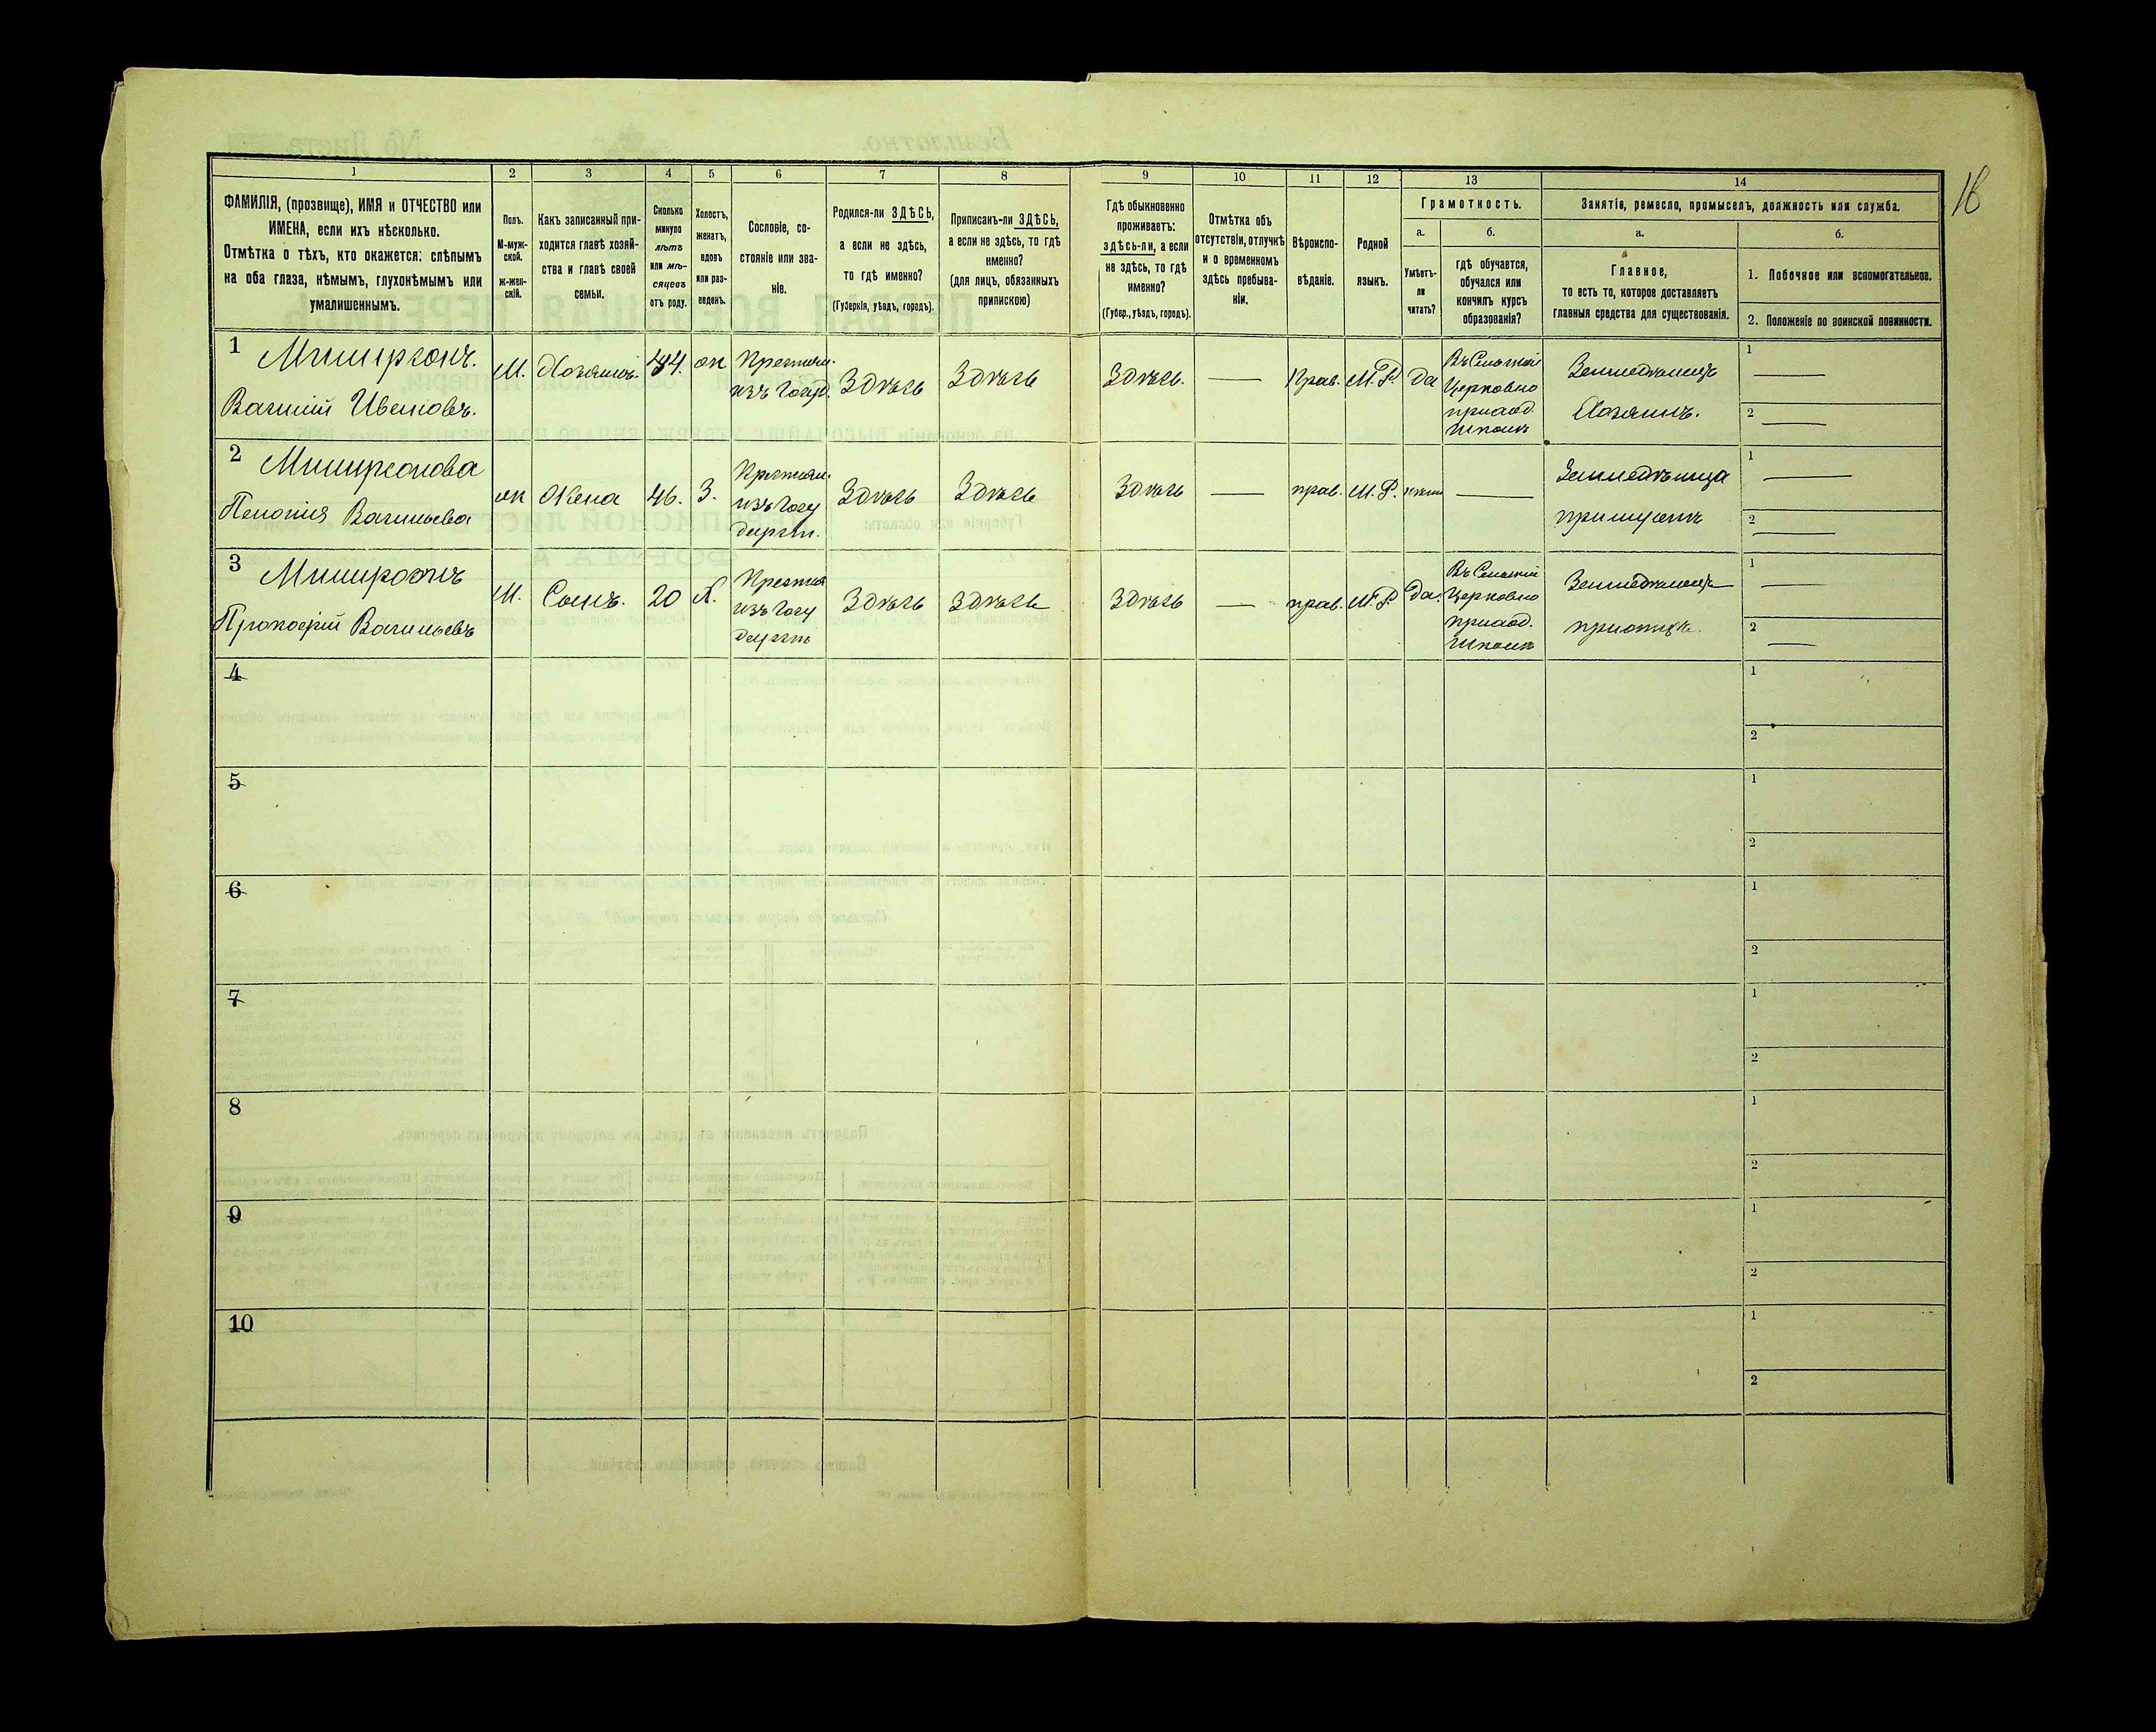 16
1 2 3 4 5 6 7 8 9 10 11 12 13 14
ФАМИЛІЯ, (прозвище), ИМЯ и ОТЧЕСТВО или
ИМЕНА, если ихъ нѣсколько.
Отмѣтка о тѣхъ, кто окажется: слѣпымъ
на оба глаза, нѣмымъ, глухонѣмымъ или
умалишеннымъ.
Полъ.
М-муж-
ской.
ж-жен-
скій.
Какъ записанный при-
ходится главѣ хозяй-
ства и главѣ своей
семьи.
Сколько
минуло
лѣтъ
или мѣ-
сяцевъ
отъ роду.
Холостъ,
женатъ,
вдовъ
или раз-
веденъ.
Сословіе, со-
стояніе или зва-
ніе.
Родился-ли ЗДѢСЬ,
а если не здѣсь,
то гдѣ именно?
(Губернія, уѣздъ, городъ).
Приписанъ-ли ЗДѢСЬ,
а если не здѣсь, то гдѣ
именно?
(для лицъ, обязанныхъ
припискою)
Гдѣ обыкновенно
проживаетъ:
здѣсь-ли, а если
не здѣсь, то гдѣ
именно?
(Губер., уѣздъ, городъ).
Отмѣтка объ
отсутствіи, отлучкѣ
и о временномъ
здѣсь пребыва-
ніи.
Вѣроиспо-
вѣданіе.
Родной
языкъ.
Грамотность.
а.
Умѣетъ-
ли
читать?
б.
гдѣ обучается,
обучался или
кончилъ курсъ
образованія?
Занятіе, ремесло, промыселъ, должность или служба.
а.
Главное,
то есть то, которое доставляетъ
главныя средства для существованія.
б.
1. Побочное или вспомогательное.
2. Положеніе по воинской повинности.
1
Василій Ивановъ.
М.
Хозяинъ.
44.
ж
Крестьян.
изъ Госуд.
Здѣсь
Здѣсь
Здѣсь.
Прав.
М.Р.
да
Въ Сельской
Церковно
приход.
Школѣ
Земледѣлецъ
Хозяинъ.
1
2
2
Васильева
ж
Жена
46.
З.
Крестьян.
изъ Госу
дарст.
Здѣсь
Здѣсь
Здѣсь
прав.
М.Р.
Земледѣлица
1
2
3
Прокофій Васильевъ
М.
Сынъ.
20
Х.
Крестья
изъ Госу
дарст
Здѣсь
Здѣсь
Здѣсь
прав.
М.Р.
да.
Въ Сельской
Церковно
приход.
Школѣ
Земледѣлецъ
1
2
4
1
2
5
1
2
6
1
2
7
1
2
8
1
2
9
1
2
10
1
2